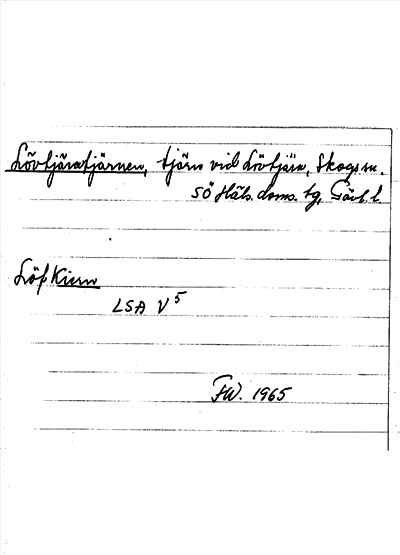 Lövtjäratjärnen, tjärn vid Lövtjära, Skogs sn.
SÖ Häls. doms. tg, Gävl. l.
Löf Kiern
LSA V 5
FW. 1965